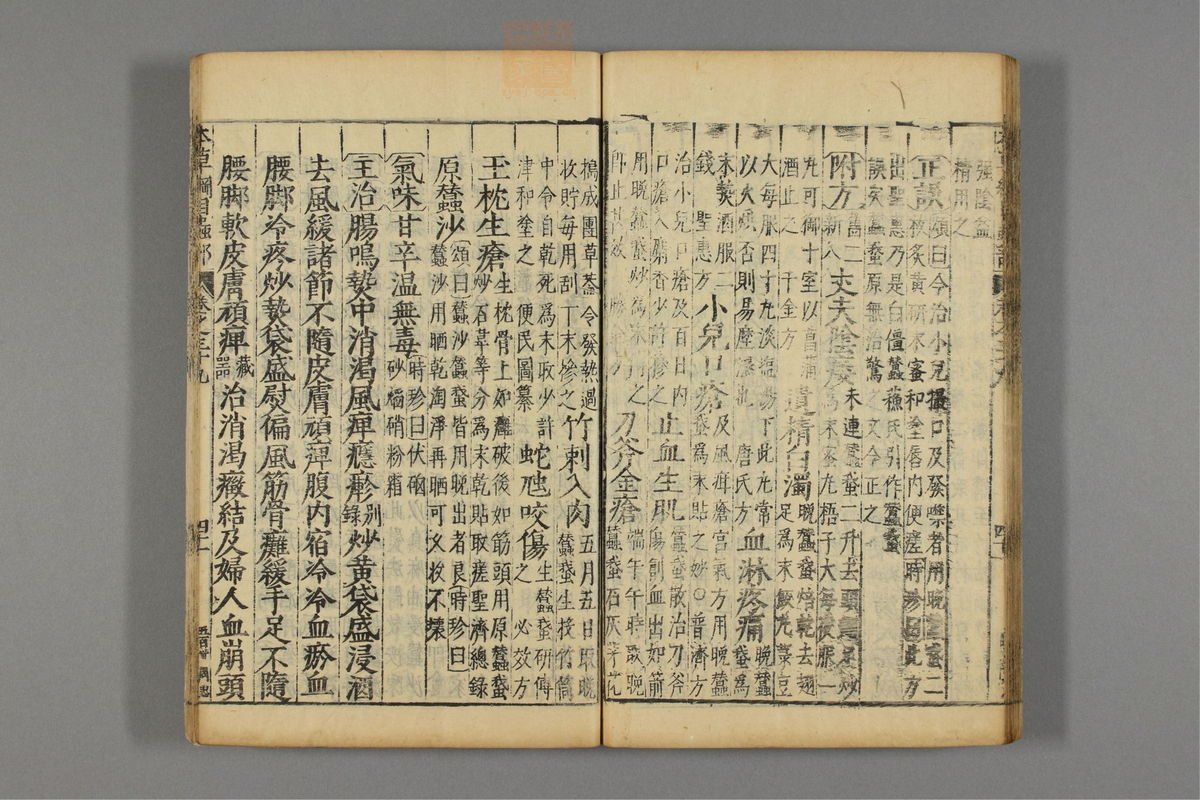 強陰益
精用之
正誤
頌曰今治小兒撮口及發噤者用晚蠶蛾二
枚炙黃研末蜜和塗唇內便瘥時珍曰此方
出聖惠乃是白僵蠶蘇氏引作蠶蛾
誤矣蠶蛾原無治驚之文今正之
附方
舊二
新八
丈夫陰痿
未連蠶蛾二升去頭翅足炒
為末蜜丸梧子大每夜服一
丸可御十室以菖蒲
酒止之 千金方
遺精白濁
晚蠶蛾焙乾去翅
足為末飯丸菉豆
大每服四十丸淡塩湯下此丸常
以火烘否則易糜濕也 唐氏方
血淋疼痛
晚蠶
蛾為
末熱酒服二
錢 聖惠方
小兒口瘡
及風疳瘡宮氣方用晚蠶
蛾為末貼之妙○普濟方
治小兒口瘡及百日內
口瘡入麝香少許摻之
止血生肌
蠶蛾散治刀斧
傷創血出如箭
用晚蠶蛾炒為末傅之
即止甚效 勝金方
刀斧金瘡
端午午時取晚
蠶蛾石灰茅花
搗成團草蓋令發熱過
收貯每用刮下末摻之
竹刺入肉
五月五日取晚
蠶蛾生投竹筒
中令自乾死為末取少許
津和塗之 便民圖纂
蛇虺咬傷
生蠶蛾研傅
之 必效方
玉枕生瘡
生枕骨上如癰破後如筋頭用原蠶
蛾炒石韋等分為末乾貼取瘥聖濟總錄
原蠶沙
頌曰蠶沙蠶蛾皆用晚出者良時珍曰
蠶沙用晒乾淘淨再晒可久收不壞
氣味甘辛溫無毒
時珍曰伏硇
砂焰硝粉霜
主治腸鳴熱中消渴風痹癮疹別錄炒黃袋盛浸酒
去風緩諸節不隨皮膚頑痺腹內宿冷冷血瘀血
腰脚冷疼炒熱袋盛熨偏風筋骨癱緩手足不隨
腰脚軟皮膚頑痺藏器治消渴癥結及婦人血崩頭
本草綱目蟲部 卷之三十九 四十一